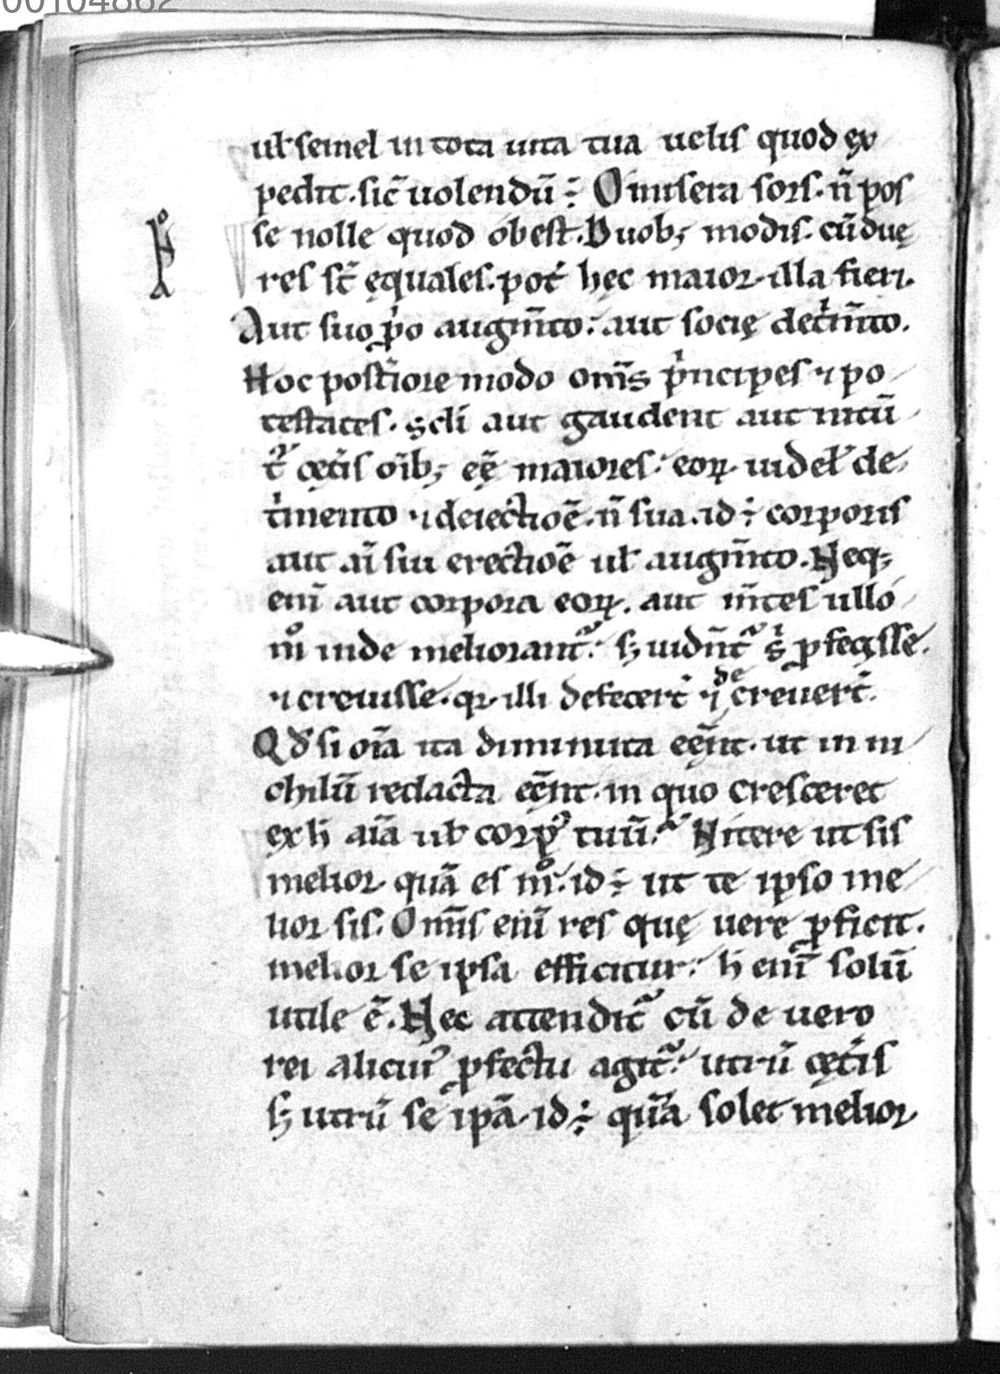 00104862
ul̄ semel in tota uita tua uelis quod ex
pedit. sic̄ uolendū ÷ O misera sors. n̄ pos
se nolle quod obest. Duob; modis. cū duę
res sc̄ ęquales. pot̄ hęc maior. illa fieri.
Aut suo ꝓprio augm̄to. aut socię det̄m̄to.
Hoc post̄iore modo om̄s p̄ncipes ⁊ po
testates. sc̄li aut gaudent aut nitū
t᷑ cęt̄is oīb; eē maiores. eoꝝ uidel᷑ de
t̄mento ⁊ deiectioē. n̄ sua. id ÷ corporis
aut aī sui erectioē ul̄ augm̄to. Neq;
enī aut corpora eoꝝ. aut m̄tes ullo
m̊ inde meliorant᷑. ꝫ uidn̄t᷑ s̄ ꝓfecisse.
⁊ creuisse. qꝛ illi defecer̄t ⁊ decreuer̄t.
Qd̄ si oīa ita diminuta eēnt. ut in ni
chilū redacta eēnt. in quo cresceret
ex h̄ aīa ul̄ corpꝰ tuū. Nitere ut sis
melior quā es m̊. id ÷ ut te ipso me
lior sis. Om̄is enī res quę uere ꝓficit.
melior se ipsa efficitur. h̄ enī solū
utile ē. Hęc attendit᷑ cū de uero
rei alicuiꝰ ꝓfectu agit᷑. utrū cęt̄is
ꝫ utrū se ipā. id ÷ quā solet melior